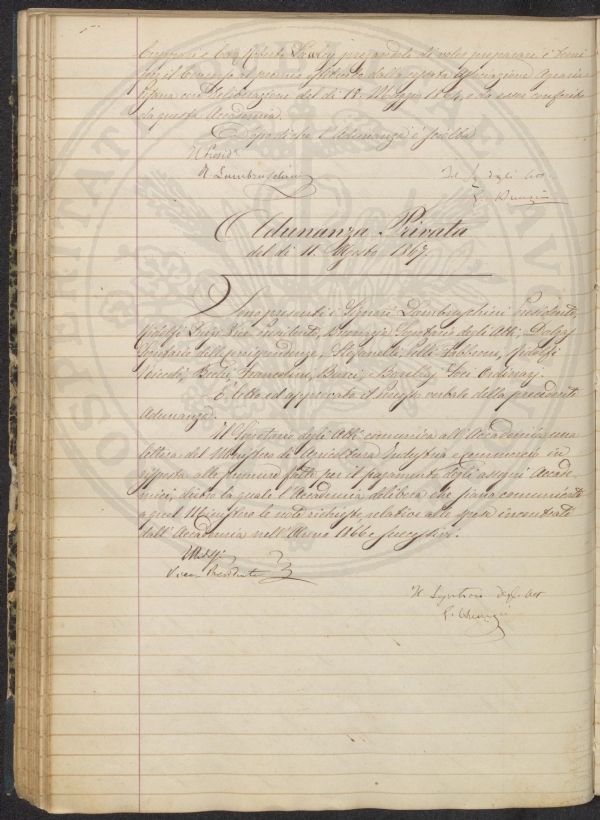 pregandolo di voler preparare i temi
per il Concorso al premio
con deliberazione del di 18. Maggio 1864, e da essere conferito
da questa Accademia.
Dopo di che l'Adunanza è sciolta
Il Presid.
R Lambruschini
Il S. degli Atti
Adunanza Privata
del di 11. Agosto 1867.
Sono presenti i Signori Lambruschini Presidente,
Ridolfi Vice Presidente, Segretario degli Atti, Dalgas
Segretario delle corrispondenze, Stefanelli, Pelli Fabbroni, Ridolfi
Niccolò, Franceschini, Burci, Soci Ordinarj.
È letto ed approvato il processo verbale della precedente
Adunanza.
Il Segretario degli Atti comunica all'Accademia una
lettera del Ministero di Agricoltura Industria e commercio in
risposta alle premure fatte per il pagamento degli assegni Accade-
mici, dietro la quale l'Accademia delibera che siano comunicate
a quel Ministero le note richieste relative alle spese incontrate
dall'Accademia nell'Anno 1866 e successivi.
Ridolfi
Vice Presidente
Il Segretario degli Atti